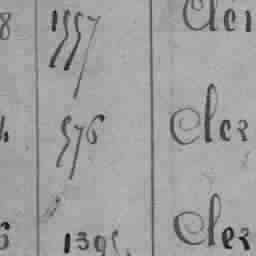 8 1557 Cler
576 Cler
1395 Cler